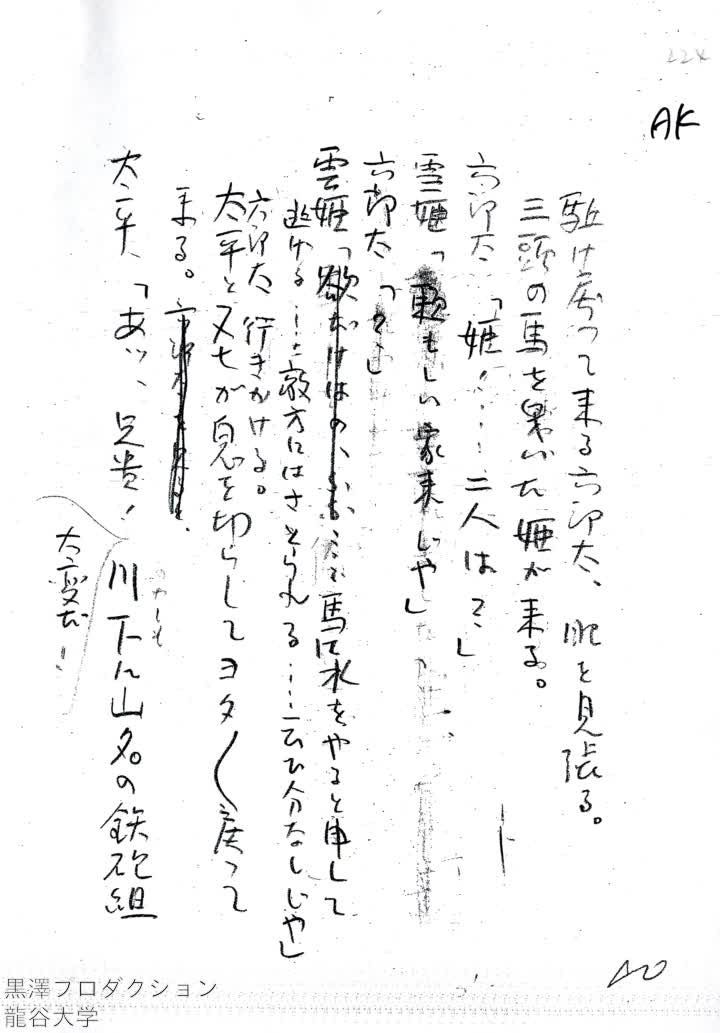 224
AK
駈け戻って来る六郎太、眼を見張る。
三頭の馬を曳いた姫が来る。
六郎太「姫!……二人は?」
雪姫「頼もしい家来じゃ」
六郎太「?」
雪姫「欲だけはの、……馬に水をやると申して
逃げる……敵方にはさとられる……云ひ分なしじゃ」
六郎太、行きかける。
太平と又七が息を切らしてヨタ〳〵戻って
来る。
太平、「あッ、兄貴! 川下に山名の鉄砲組
かわしも
大変だ!
40
黒澤プロダクション
龍谷大学